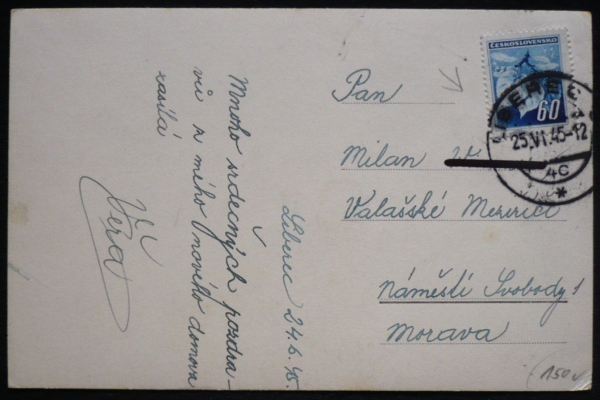 Mnoho srdečných pozdra-
vů z mého nového domova
zasílá
Věra
Liberec 24.6.45.
Pan
Milan V
Valašské Meziříčí
Náměstí Svobody 1
Morava
ČESKOSLOVENSKO
60
LIBEREC
25.VI.45-12
4c
150